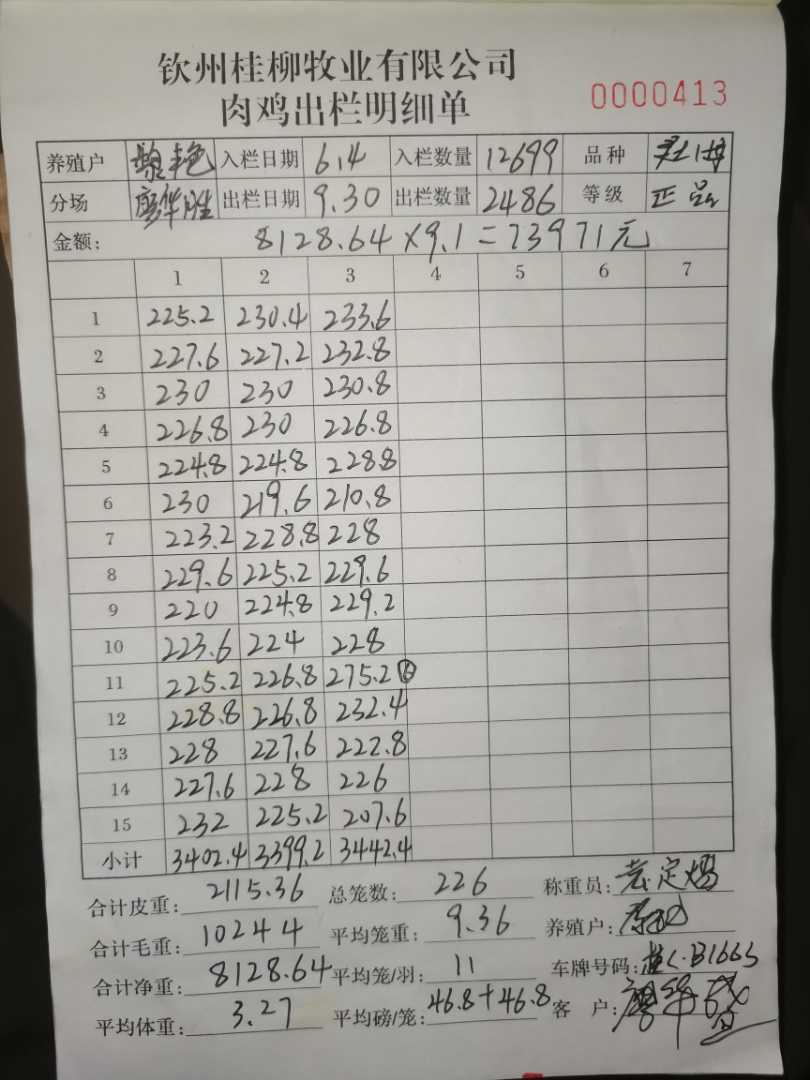 钦州桂柳牧业有限公司
肉鸡出栏明细单 0000413
养殖户 黎艳 入栏日期 6.4 入栏数量 12699 品种
分场 廖华胜 出栏日期 9.30 出栏数量 2486 等级 正品
金额: 8128.64×9.1=73971元
1 2 3 4 5 6 7
1 225.2 230.4 233.6
2 227.6 227.2 232.8
3 230 230 230.8
4 226.8 230 226.8
5 224.8 224.8 228.8
6 230 219.6 210.8
7 223.2 228.8 228
8 229.6 225.2 229.6
9 220 224.8 229.2
10 223.6 224 228
11 225.2 226.8 275.2 ⑥
12 228.8 226.8 232.4
13 228 227.6 222.8
14 227.6 228 226
15 232 225.2 207.6
小计 3402.4 3399.2 3442.4
合计皮重: 2115.36 总笼数: 226 称重员:
合计毛重: 10244 平均笼重: 9.36 养殖户:
合计净重: 8128.64 平均笼/羽: 11 车牌号码:
平均体重: 3.27 平均磅/笼: 46.8+46.8 客户: